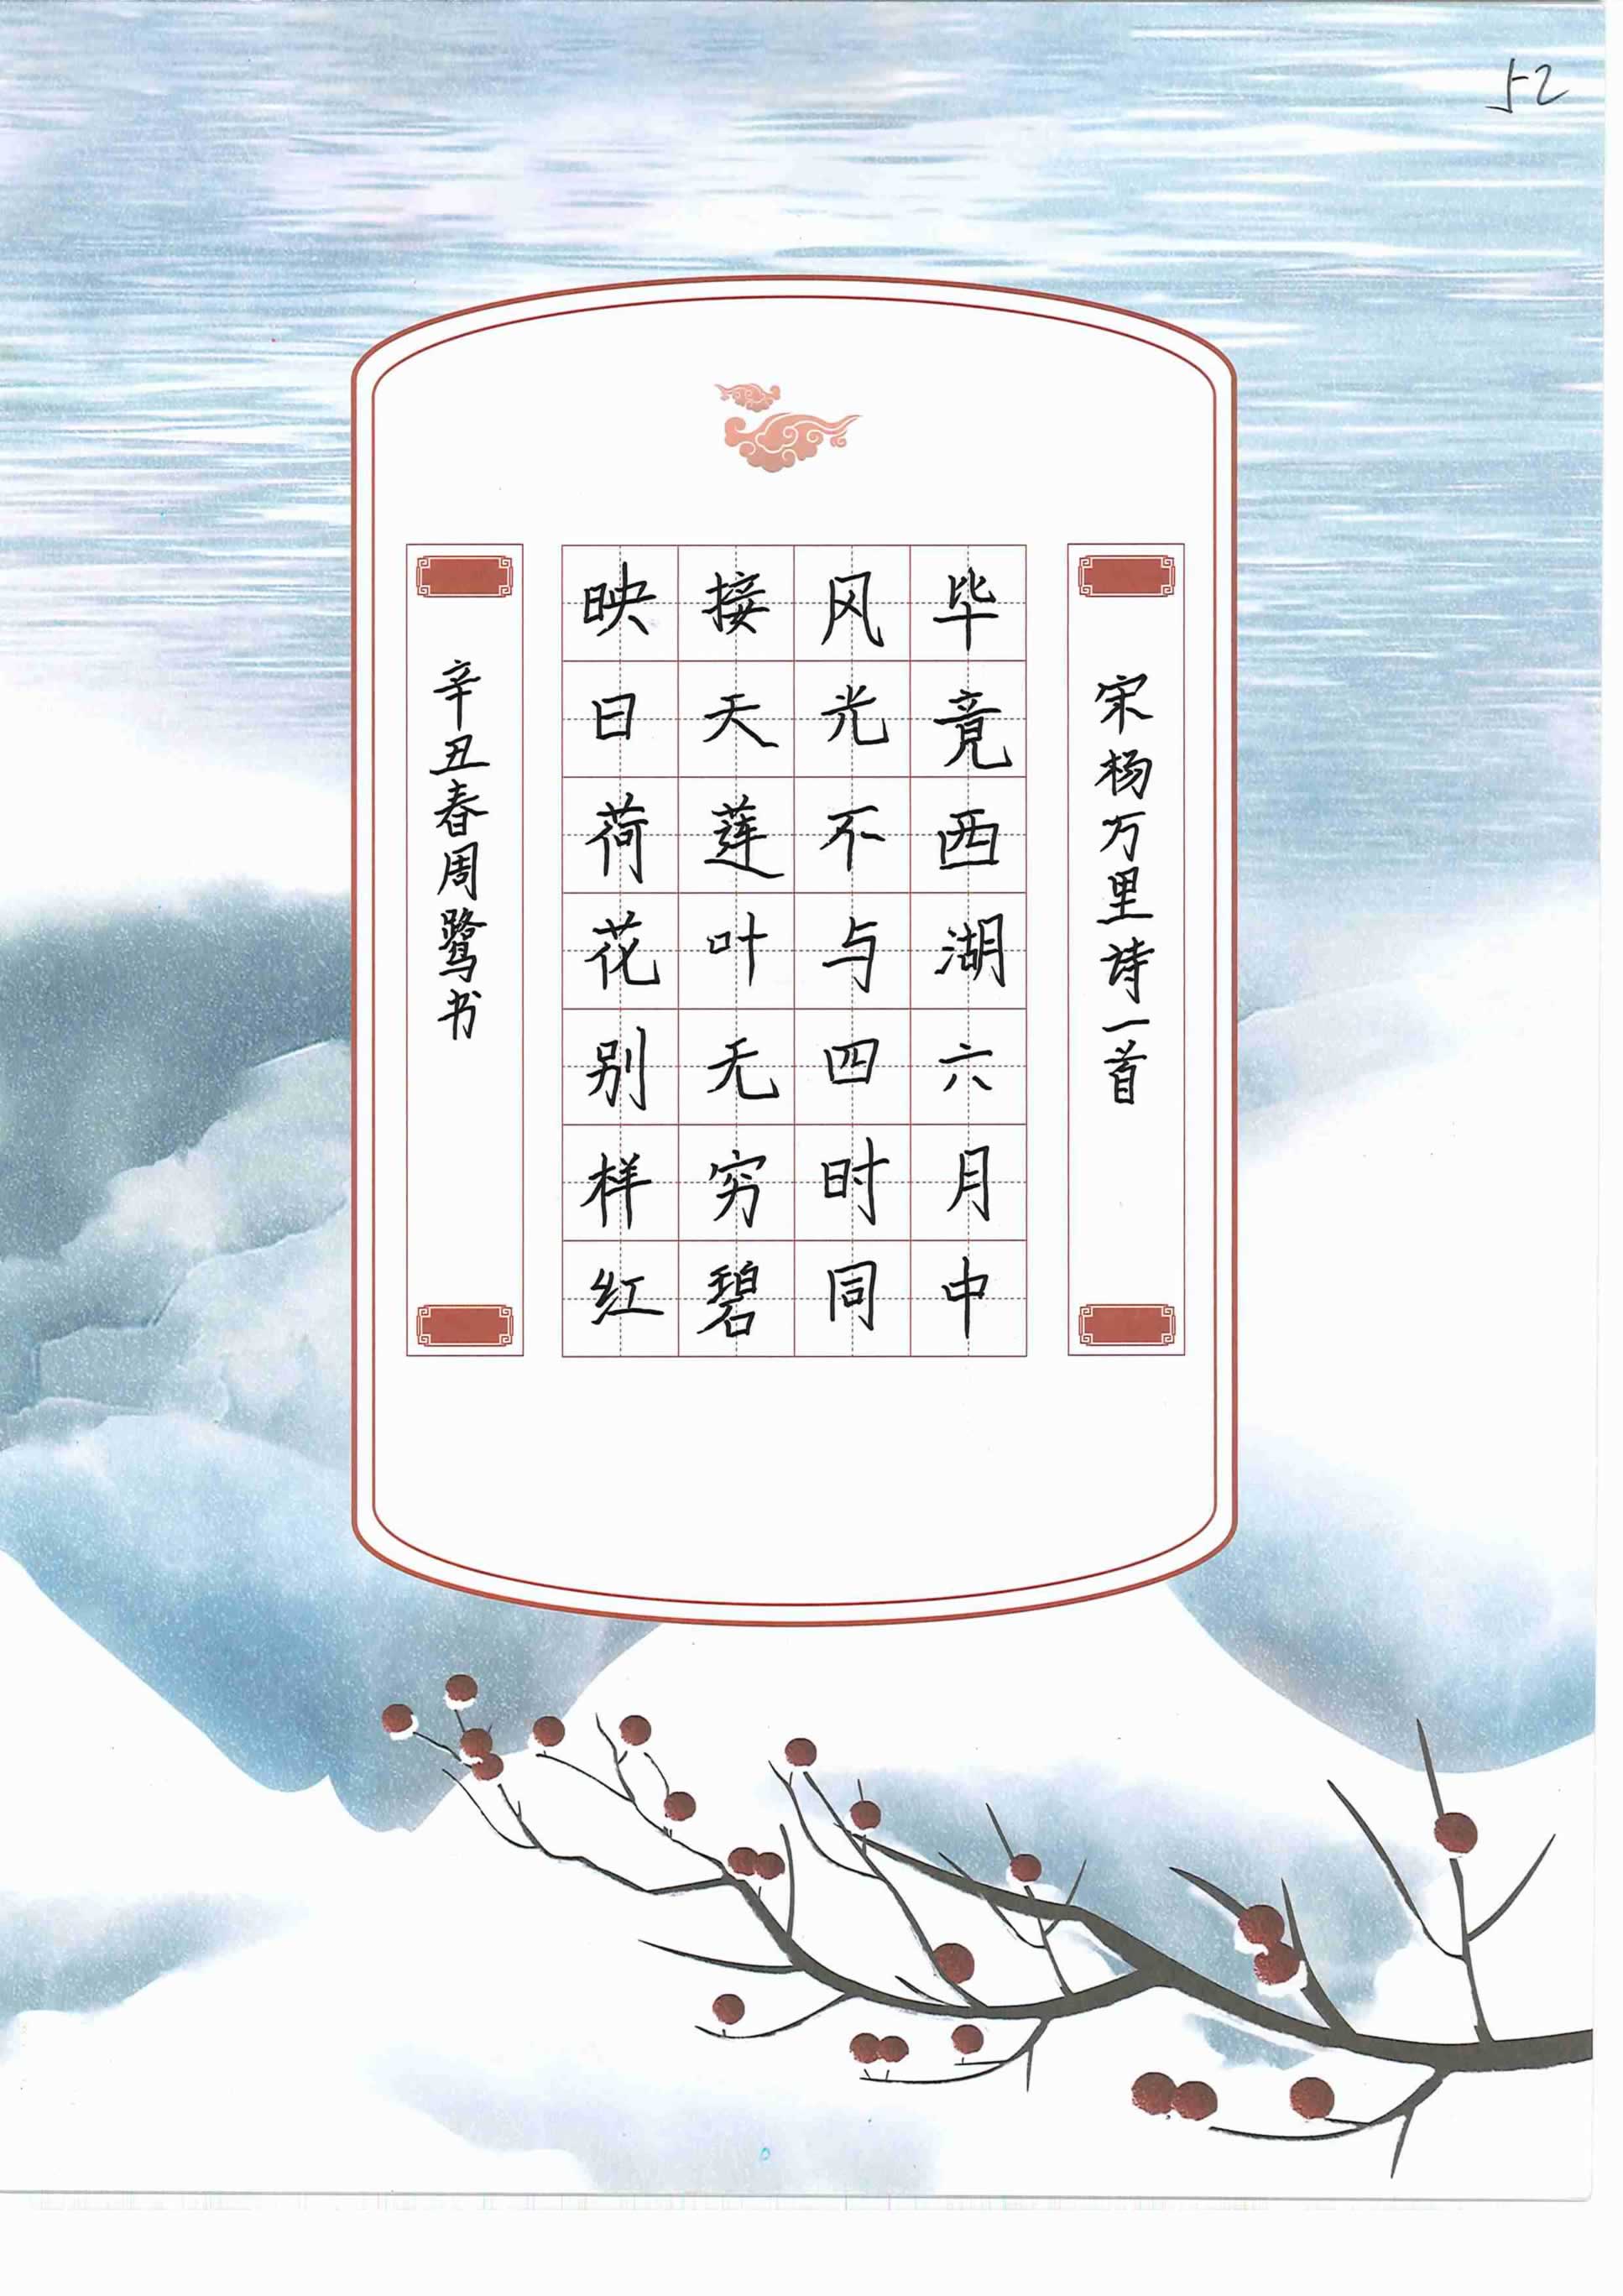 52
宋杨万里诗一首
毕竟西湖六月中
风光不与四时同
接天莲叶无穷碧
映日荷花别样红
辛丑春周鹭书